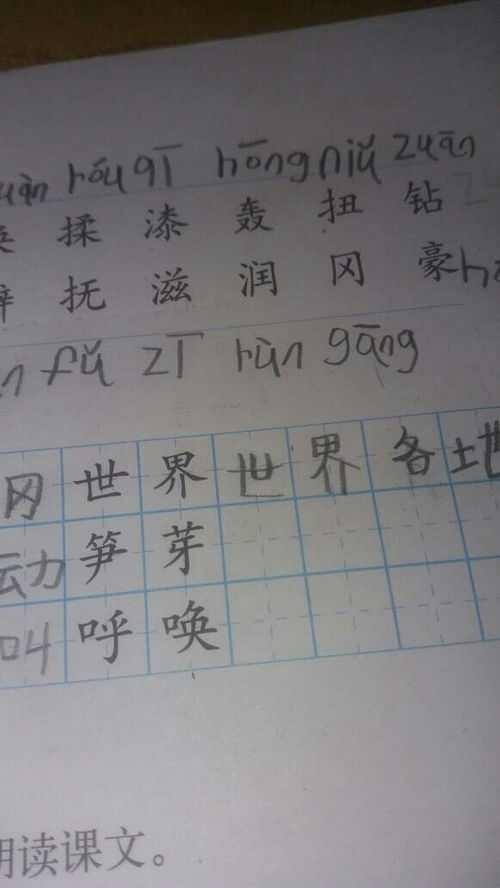 uàn róu qī hōng niǔ zuān
揉 漆 轰 扭 钻
抚 滋 润 冈 豪 h
n fǔ zī rùn gāng
冈 世 界 世 界 各 地
动 笋 芽
叫 呼 唤
朗读课文。